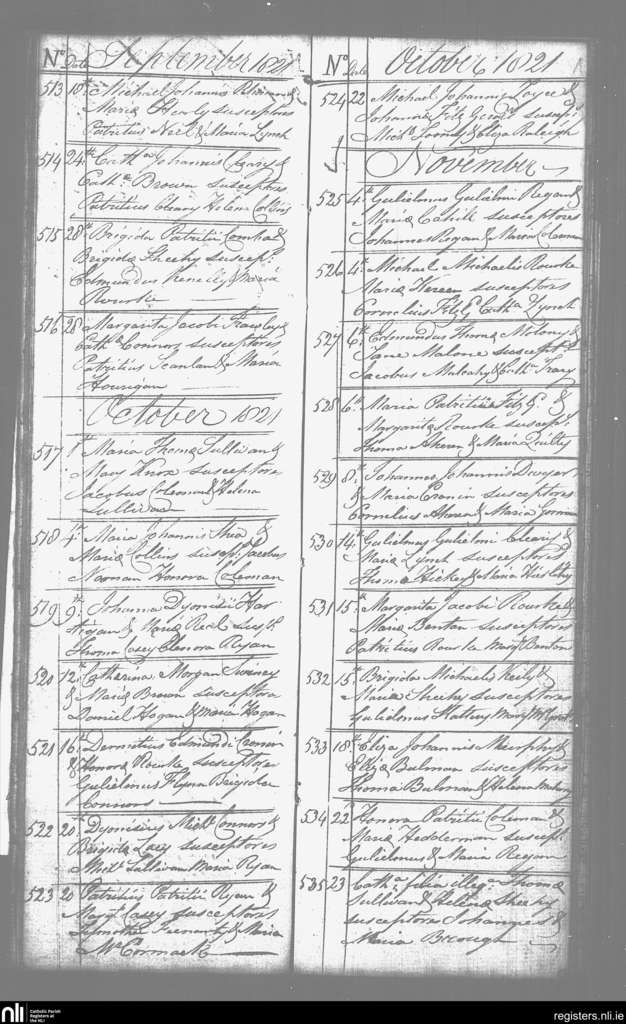 No Date September 1821
513 10th Michael Johannis
Maria Healy susceptores
Patritius Neil & Maria Lynch
514 24th Cathn Johannis Cleary &
Cathn Brown susceptores
Patritius Cleary Helena Collins
515 28th Brigida Patritii &
Brigida Sheehy suscep:
Edmundus Keneely & Maria
Rourke
516 28 Margarita Jacobi &
Cathn Connors susceptores
Patritius Scanlan & Maria
Hourigan
October 1821
517 1st Maria Thoma Sullivan &
Mary Knox susceptores
Jacobus Coleman & Helena
Sullivan
518 4th Maria Johannis Shea &
Maria Collins suscep: Jacobus
Noonan Honora Coleman
519 9th Johanna Dyonisii Har
tigan & Maria Real susp:
Thoma Casey Elenora Ryan
520 12th Catharina Morgan Swiney
& Maria Brown susceptora
Daniel Hogan & Maria Hogan
521 16th Dermitius Edmundi Cronin
& Honora Rourke susceptores
Gulielmus Flynn Brigida
Connors
522 20th Dyonisius Michl Connors &
Brigida Lacy susceptores
Michl Sullivan Maria Ryan
523 20 Patritius Patritii Ryan &
Margt Casey susceptores
Timothy & Maria
McCormack
No Date October 1821
524 22 Michael Johannis Joyce &
Johanna Fitz Gerd suscep:
Michl & Eliza Raleigh
November
525 4th Gulielmus Gulielmi Regan &
Maria Cahill susceptores
Johannes Regan & Maria Coleman
526 4th Michael Michaelis Rourke
Maria susceptores
Cornelius Fitz Gd Cathn Lynch
527 6th Edmundus Thoma Molony &
Jane Malone suscept:
Jacobus Mulcahy & Cathn Tracy
528 6th Maria Patritii Fitz Gd &
Margarita Rourke suscep:
Thoma Ahern & Maria Quilty
529 8th Johannes Johannis Dwyer
& Maria Cronin susceptores
Cornelius Ahern & Maria Gorman
530 14th Gulielmus Gulielmi Cleary &
Maria Lynch susceptores
Thoma Hickey & Maria Hickey
531 15th Margarita Jacobi Rourke &
Maria Benton susceptores
Patritius Rourke Mary Benton
532 15th Brigida Michaelis Keely &
Maria Sheehy susceptores
Gulielmus Slattery Mary
533 18th Eliza Johannis Murphy &
Eliza Bulman susceptores
Thoma Bulman & Helena
534 22 Honora Patritii Coleman &
Maria Hedderman suscept:
Gulielmus & Maria Regan
535 23 Cathn filia illeg: Thoma
Sullivan & Helena Sheehy
susceptores Johannes &
Maria Brough
nli
Catholic Parish
Registers at
the NLI
registers.nli.ie